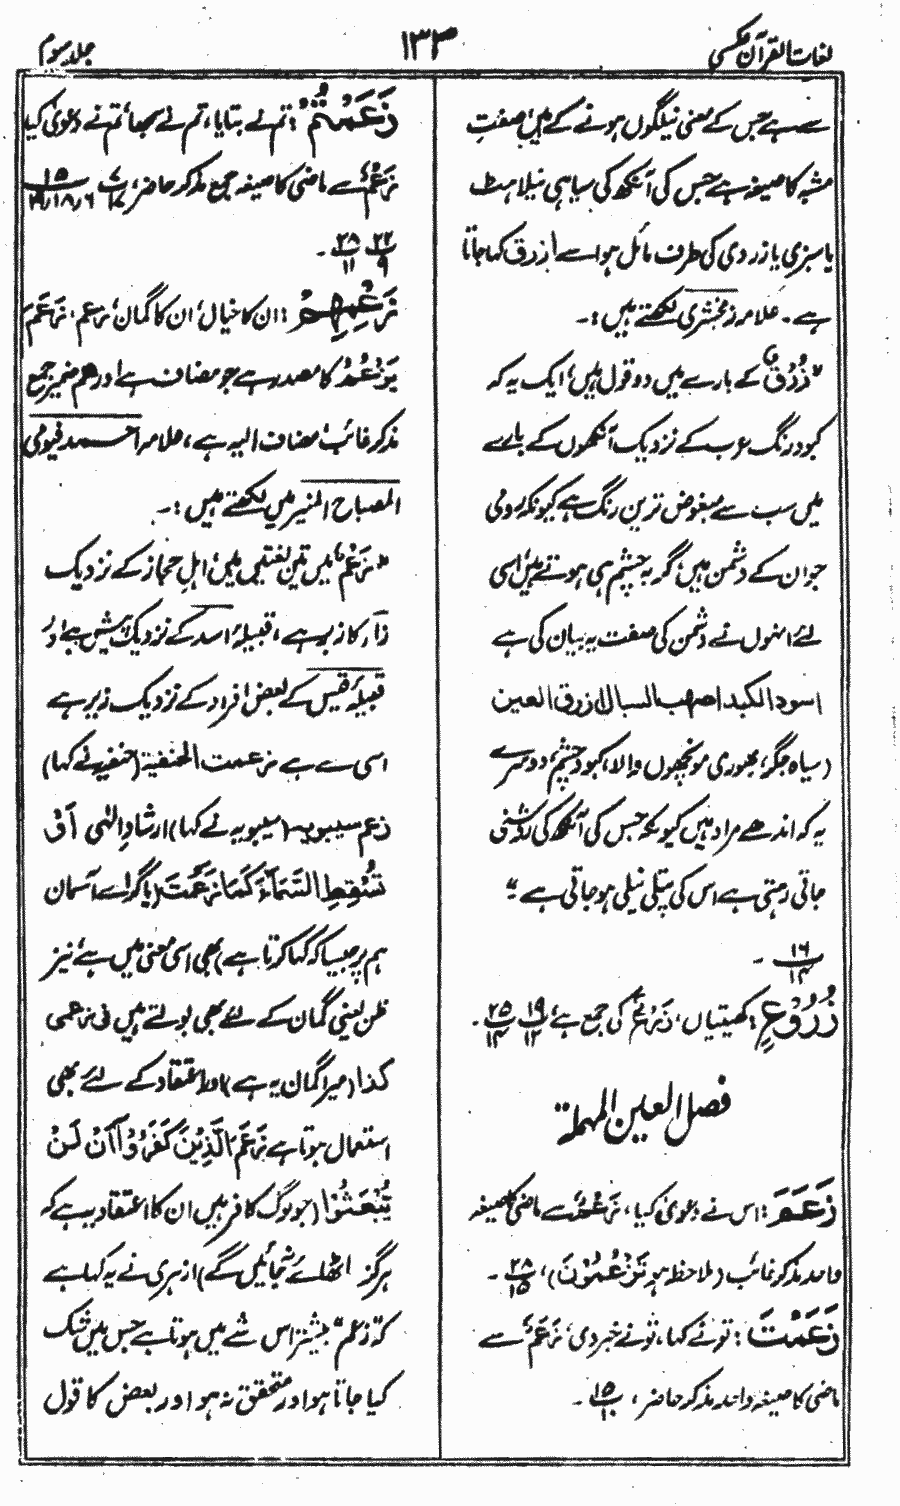 لغات القرآن عکسی
۱۳۳
جلد سوم
سے ہے جس کے معنی نیلگوں ہونے کے ہیں، صفتِ
مشبہ کا صیغہ ہے جس کی آنکھ کی سیاہی نیلاہٹ
یا سبزی یا زردی کی طرف مائل ہو اسے ازرق کہا جاتا
ہے۔ علامہ زمخشری لکھتے ہیں :۔
"زُرْق کے بارے میں دو قول ہیں، ایک یہ کہ
کبود رنگ عرب کے نزدیک آنکھوں کے بارے
میں سب سے مبغوض ترین رنگ ہے کیونکہ رومی
جو ان کے دشمن ہیں، گربہ چشم ہی ہوتے ہیں، اسی
لئے انہوں نے دشمن کی صفت یہ بیان کی ہے
اسود الکبد اصهب السبال ازرق العین
(سیاہ جگر، بھوری مونچھوں والا، کبود چشم، دوسرے
یہ کہ اندھے مراد ہیں کیونکہ جس کی آنکھ کی روشنی
جاتی رہتی ہے اس کی پتلی نیلی ہو جاتی ہے۔"
۱۶/۱۴ ۔
زُرُوْعٍ : کھیتیاں، زَرْعٌ کی جمع ہے، ۱۹/۱۲ ۲۵/۱۴ ۔
فصل العین المہملۃ
زَعَمَ : اس نے دعویٰ کیا، زَعْمٌ سے ماضی کا صیغہ
واحد مذکر غائب (ملاحظہ ہو تَزْعُمُوْنَ)، ۲۸/۱۵ ۔
زَعَمْتَ : تو نے کہا، تو نے خبر دی، زَعْمٌ سے
ماضی کا صیغہ واحد مذکر حاضر، ۱۵/۱۰ ۔
زَعَمْتُمْ : تم نے بتایا، تم نے سمجھا، تم نے دعویٰ کیا
زَعْمٌ سے ماضی کا صیغہ جمع مذکر حاضر، ۷/۱۷ ۱۵/۱۹،۱۸،۶
۲۲/۹ ۲۸/۱۱ ۔
زَعْمِهِمْ : ان کا خیال، ان کا گمان، زعم، زَعَمَ
یَزْعُمُ کا مصدر ہے جو مضاف ہے اور هم ضمیر جمع
مذکر غائب مضاف الیہ ہے، علامہ احمد فیومی
المصباح المنیر میں لکھتے ہیں :۔
"زعم میں تین لغتیں ہیں، اہلِ حجاز کے نزدیک
زاء کا زبر ہے، قبیلہ اسد کے نزدیک پیش ہے اور
قبیلہ قیس کے بعض افراد کے نزدیک زیر ہے
اسی سے ہے زعمت الحنفیۃ (حنفیہ نے کہا)
زعم سیبویہ (سیبویہ نے کہا) ارشادِ الٰہی أَوْ
تُسْقِطَ السَّمَآءَ كَمَا زَعَمْتَ (یا گرا دے آسمان
ہم پر جیسا کہ کہا کرتا ہے) بھی اسی معنی میں ہے، نیز
ظن یعنی گمان کے لئے بھی بولتے ہیں فی زعمی
کذا (میرا گمان یہ ہے) اور اعتقاد کے لئے بھی
استعمال ہوتا ہے زَعَمَ الَّذِيْنَ كَفَرُوْا اَنْ لَنْ
يُّبْعَثُوْا (جو لوگ کافر ہیں ان کا اعتقاد یہ ہے کہ
ہرگز اٹھائے نہ جائیں گے) ازہری نے یہ کہا ہے
کہ "زعم" بیشتر اس شے میں ہوتا ہے جس میں شک
کیا جاتا ہو اور متحقق نہ ہو اور بعض کا قول